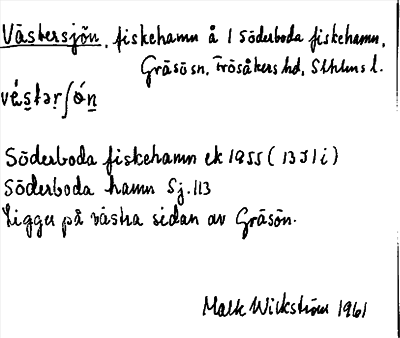 Västersjön, fiskehamn å 1 Söderboda fiskehamn,
Gräsö sn, Frösåkers hd, Sthlms l.
vés̲tər̲ʃö́n̲
Söderboda fiskehamn ek 1955 (13J1i)
Söderboda hamn Sj. 113
Ligger på västra sidan av Gräsön.
Wickström 1961